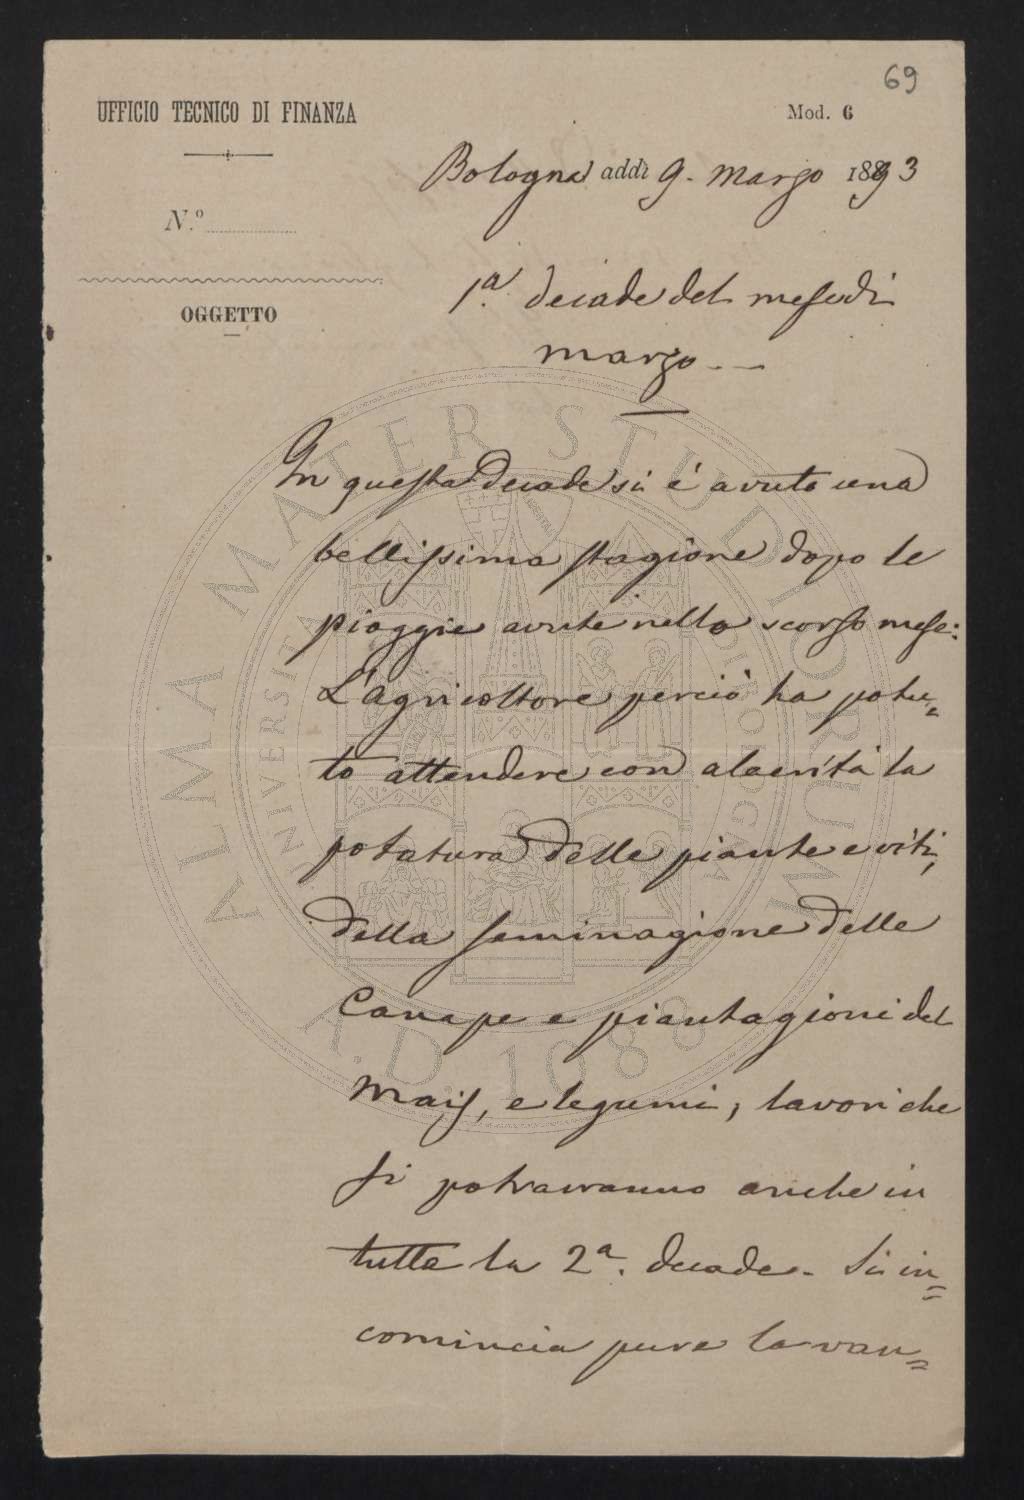 69
UFFICIO TECNICO DI FINANZA
Mod. 6
Bologna addì 9. Marzo 1893
N.º
OGGETTO
1.ª decade del mese di
marzo - -
In questa decade si è avuto una
bellissima stagione dopo le
pioggie avute nello scorso mese:
L'agricoltore perciò ha potu=
to attendere con alacrità la
potatura delle piante e viti,
della seminagione delle
Canape e piantagioni del
Mais, e legumi, lavori che
si potrarranno anche in
tutta la 2ª. decade. Si in=
comincia pure la van=
ALMA MATER STUDIORUM
A.D. 1088